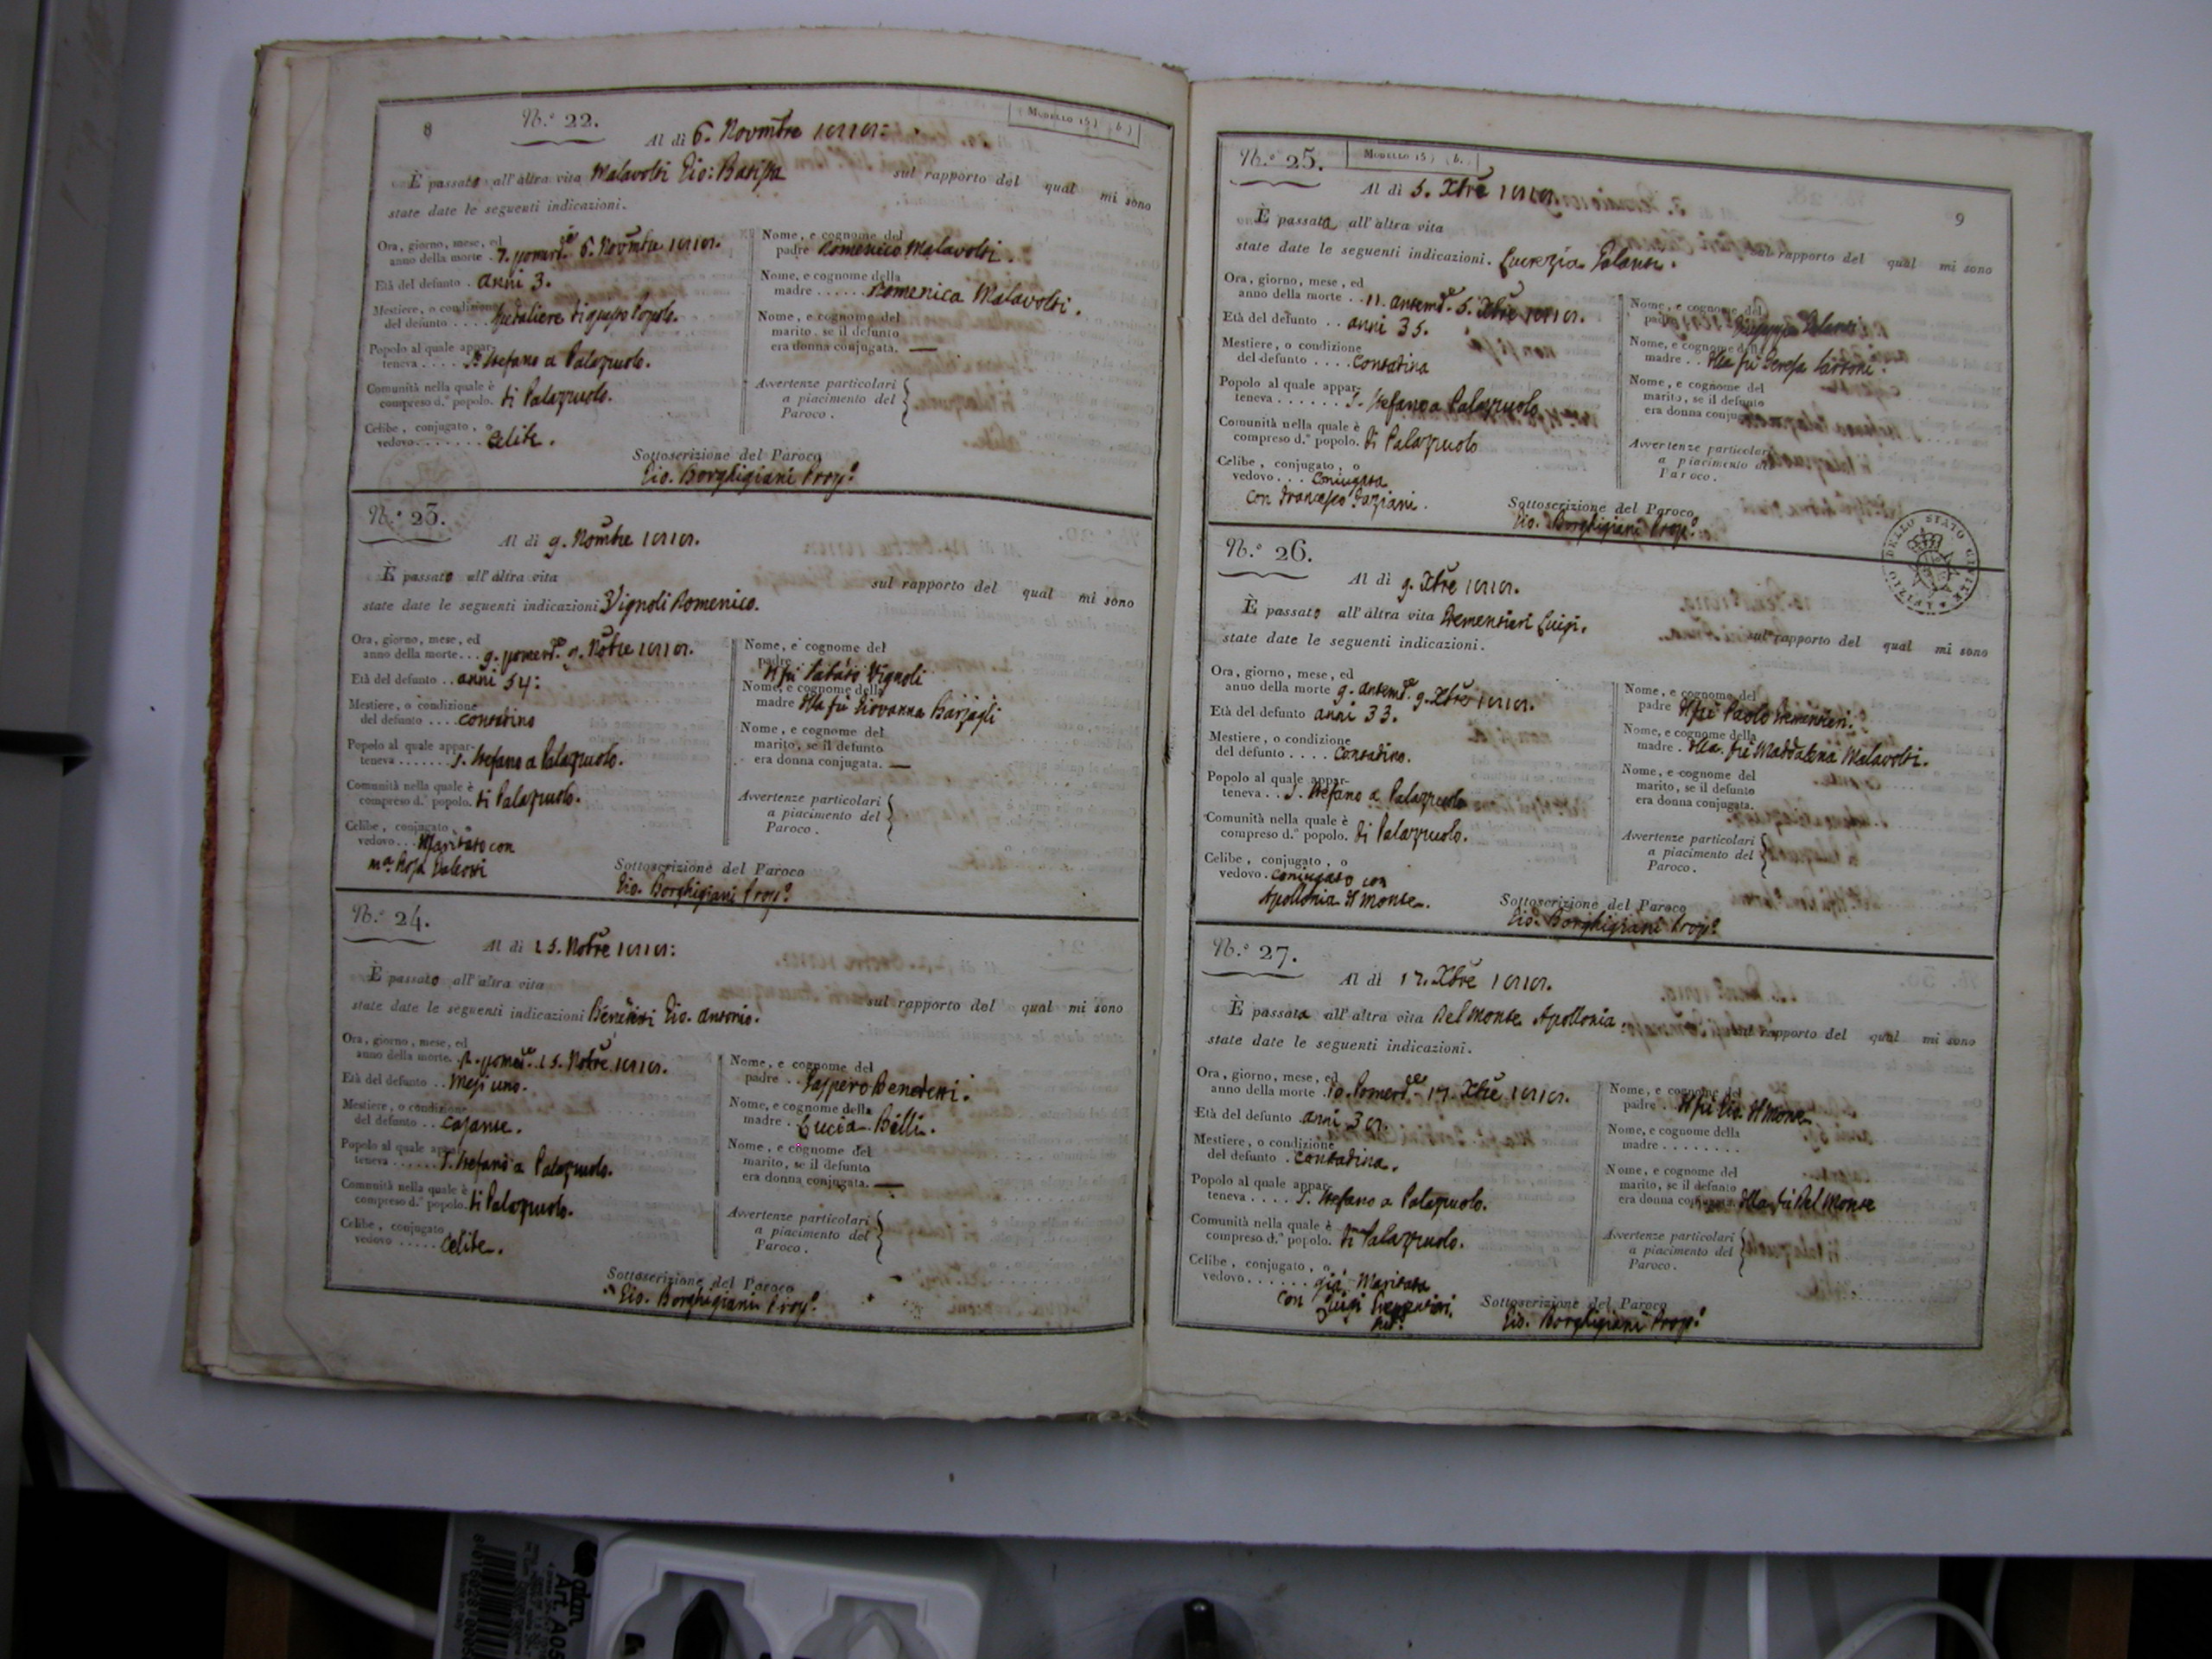 8
N.° 22.
MODELLO 15) (b.)
Al dì 6. Novmbre 1818:
È passato all'altra vita Malavolti Gio: Batista sul rapporto del qual mi sono
state date le seguenti indicazioni.
Ora, giorno, mese, ed
anno della morte . 7. pomerd.e 6. Novmbre 1818.
Età del defunto . anni 3.
Mestiere, o condizione
del defunto .... di questo Popolo.
Popolo al quale appar-
teneva .... S. Stefano a Palazzuolo.
Comunità nella quale è
compreso d.° popolo. di Palazzuolo.
Celibe, conjugato, o
vedovo ....... Celibe.
Nome, e cognome del
padre Domenico Malavolti.
Nome, e cognome della
madre ...... Domenica Malavolti.
Nome, e cognome del
marito, se il defunto
era donna conjugata. —
Avvertenze particolari
a piacimento del
Paroco.
Sottoscrizione del Paroco
Gio. Borghigiani Prop.°
N.° 23.
Al dì 9. Nombre 1818.
È passato all'altra vita sul rapporto del qual mi sono
state date le seguenti indicazioni Vignoli Domenico.
Ora, giorno, mese, ed
anno della morte ... 9. pomerd.e 9. Nobre 1818.
Età del defunto .. anni 54:
Mestiere, o condizione
del defunto .... contadino
Popolo al quale appar-
teneva ....... S. Stefano a Palazzuolo.
Comunità nella quale è
compreso d.° popolo. di Palazzuolo.
Celibe, conjugato, o
vedovo ... Maritato con
m.a Rosa
Nome, e cognome del
padre Il fù Sabato Vignoli
Nome, e cognome della
madre Dlla fù Giovanna Barzagli
Nome, e cognome del
marito, se il defunto
era donna conjugata. —
Avvertenze particolari
a piacimento del
Paroco.
Sottoscrizione del Paroco
Gio. Borghigiani Prop.°
N.° 24.
Al dì 15. Nobre 1818:
È passato all'altra vita
state date le seguenti indicazioni Benedetti Gio. Antonio. sul rapporto del qual mi sono
Ora, giorno, mese, ed
anno della morte. pomerd.e 15. Nobre 1818.
Età del defunto .. Mesi uno.
Mestiere, o condizione
del defunto ..
Popolo al quale appar-
teneva ...... S. Stefano a Palazzuolo.
Comunità nella quale è
compreso d.° popolo. di Palazzuolo.
Celibe, conjugato, o
vedovo ..... Celibe.
Nome, e cognome del
padre .. Gasspero Benedetti.
Nome, e cognome della
madre . Lucia Billi.
Nome, e cognome del
marito, se il defunto
era donna conjugata. —
Avvertenze particolari
a piacimento del
Paroco.
Sottoscrizione del Paroco
Gio. Borghigiani Prop.°
N.° 25.
MODELLO 15) (b.
9
Al dì 5. Xbre 1818
È passata all'altra vita sul rapporto del qual mi sono
state date le seguenti indicazioni. Lucrezia Galanti.
Ora, giorno, mese, ed
anno della morte .. 11. antemd.e 5. Xbre 1818.
Età del defunto .. anni 35.
Mestiere, o condizione
del defunto .... Contadina
Popolo al quale appar-
teneva ...... S. Stefano a Palazzuolo
Comunità nella quale è
compreso d.° popolo. di Palazzuolo
Celibe, conjugato, o
vedovo ... Coniugata
con Francesco Graziani.
Nome, e cognome del
padre Galanti
Nome, e cognome della
madre .. Dlla fù Teresa
Nome, e cognome del
marito, se il defunto
era donna conjugata
Avvertenze particolari
a piacimento del
Paroco.
Sottoscrizione del Paroco
Gio. Borghigiani Prop.°
UFIZIO DELLO STATO CIVILE
N.° 26.
Al dì 9. Xbre 1818.
È passato all'altra vita Trementieri Luigi. sul rapporto del qual mi sono
state date le seguenti indicazioni.
Ora, giorno, mese, ed
anno della morte 9. antemd.e 9. Xbre 1818.
Età del defunto anni 33.
Mestiere, o condizione
del defunto .... Contadino.
Popolo al quale appar-
teneva .. S. Stefano a Palazzuolo
Comunità nella quale è
compreso d.° popolo. di Palazzuolo.
Celibe, conjugato, o
vedovo . coniugato con
Apollonia Dl Monte.
Nome, e cognome del
padre Il fù Paolo Trementieri.
Nome, e cognome della
madre . Dlla fù Maddalena Malavolti.
Nome, e cognome del
marito, se il defunto
era donna conjugata.
Avvertenze particolari
a piacimento del
Paroco.
Sottoscrizione del Paroco
Gio. Borghigiani Prop.°
N.° 27.
Al dì 17. Xbre 1818.
È passata all'altra vita Del Monte Apollonia. sul rapporto del qual mi sono
state date le seguenti indicazioni.
Ora, giorno, mese, ed
anno della morte . 10. Pomerd.e 17. Xbre 1818.
Età del defunto anni 38.
Mestiere, o condizione
del defunto . contadina.
Popolo al quale appar-
teneva .... S. Stefano a Palazzuolo.
Comunità nella quale è
compreso d.° popolo. di Palazzuolo.
Celibe, conjugato, o
vedovo ...... già Maritata
con Luigi Trementieri.
Nome, e cognome del
padre . Il fù Gio. Dl Monte
Nome, e cognome della
madre ........
Nome, e cognome del
marito, se il defunto
era donna conjugata. Dlla fù Del Monte
Avvertenze particolari
a piacimento del
Paroco.
Sottoscrizione del Paroco
Gio. Borghigiani Prop.°
Art. A05